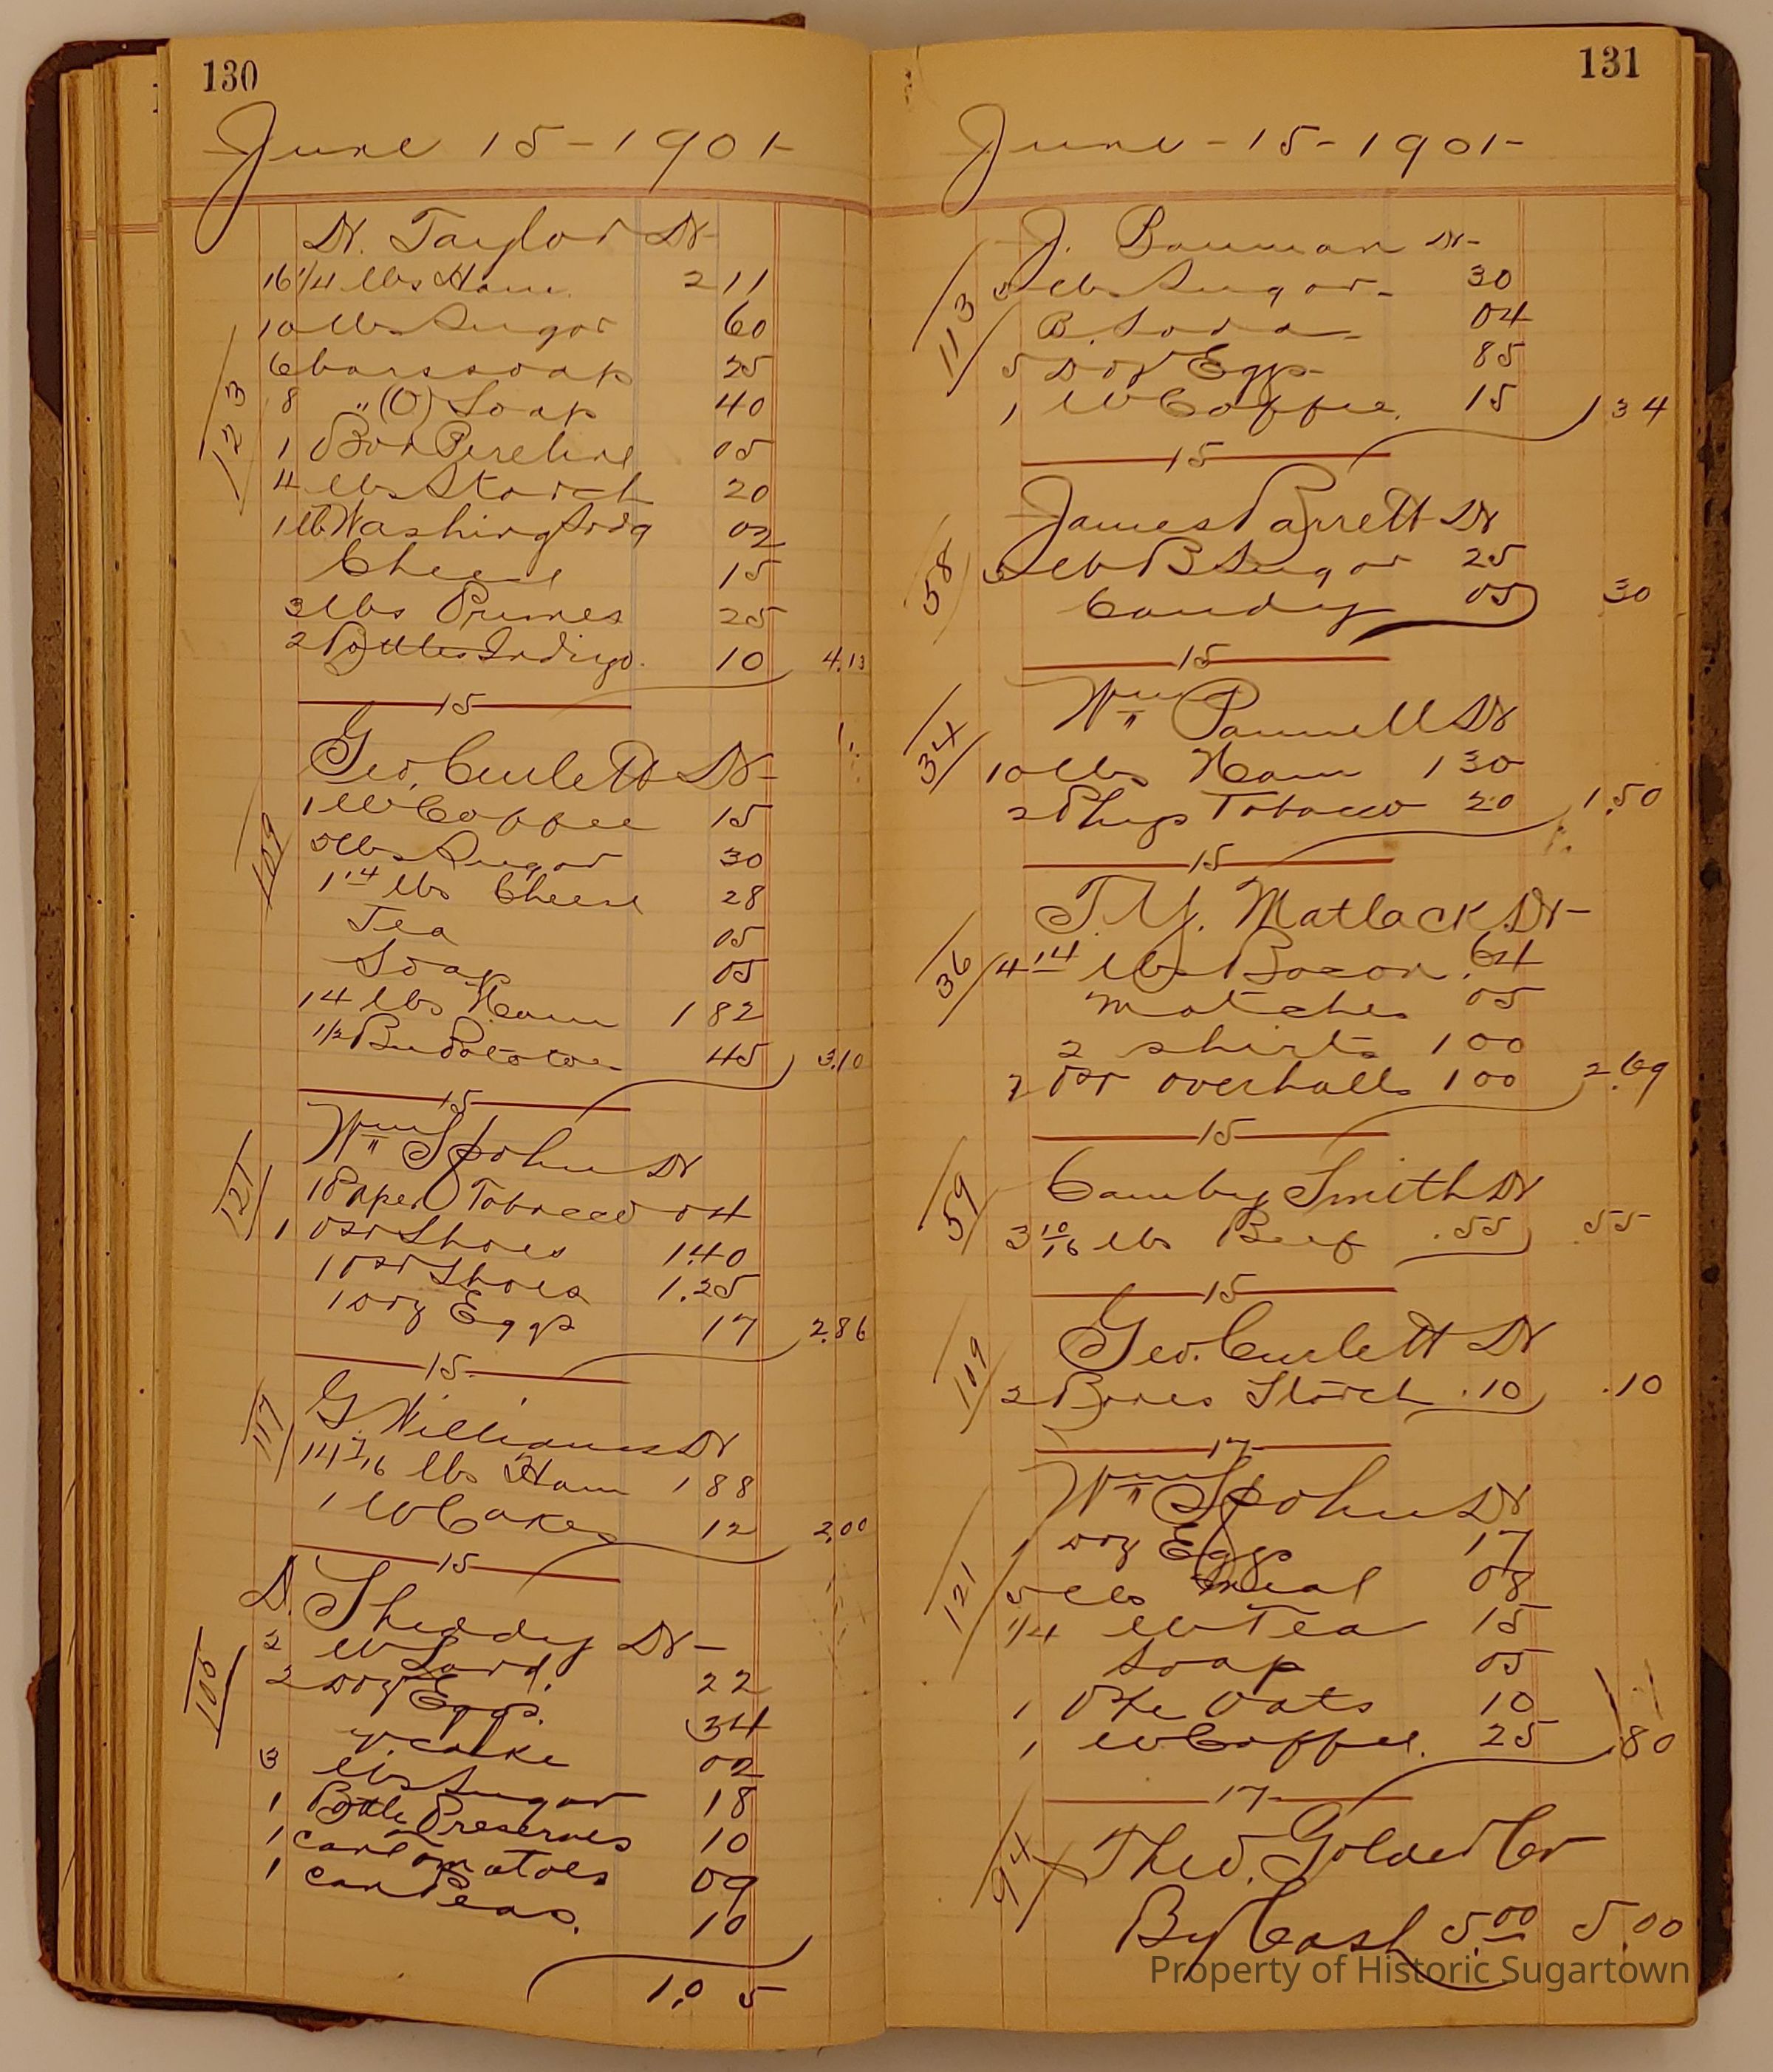 130
June 15-1901-
N. Taylor Dr-
16 1/4 lbs Ham 2 11
10 lbs Sugar 60
6 bars soap 25
8 " (O) Soap 40
1 Box Pireline 05
4 lbs Starch 20
1 lb Washing Soda 02
Cheese 15
3 lbs Prunes 25
2 Bottles Indigo. 10 4.13
123
15
Geo. Curlett Dr-
1 lb Coffee 15
5 lbs Sugar 30
1 14 lbs Cheese 28
Tea 05
Soap 05
14 lbs Ham 1 82
1/2 Bu Potatoes 45 3.10
109
15
Wm Spohn Dr
1 Paper Tobacco 04
1 pr Shoes 1.40
1 pr Shoes 1.25
1 Doz Eggs 17 2.86
121
15
G. Williams Dr
14 7/16 lbs Ham 1 88
1 lb Cakes 12 2.00
117
15
D. Sheddy Dr-
2 lb Lard. 22
2 Doz Eggs. 34
Y. cake 02
3 lbs Sugar 18
1 Bottle Preserves 10
1 can Tomatoes 09
1 can Peas. 10
1.05
105
131
June-15-1901-
J. Bauman Dr-
5 lb Sugar- 30
B. Soda 04
5 Doz Eggs 85
1 lb Coffee. 15 1 34
113
15
James Parrett Dr
5 lb B Sugar 25
Candy 05 30
58
15
Wm Pannell Dr
10 lbs Ham 1 30
2 Plugs Tobacco 20 1.50
34
15
T. Y. Matlack. Dr-
4 14 lbs Bacon .64
matches 05
2 shirts 1 00
2 pr overhalls 1 00 2.69
36
15
Camby Smith Dr
3 10/16 lbs Beef .55 .55
59
15
Geo. Curlett Dr
2 Boxes Starch .10 .10
109
17
Wm Spohn Dr
1 Doz Eggs 17
5 lbs Meal 08
1/4 lb Tea 15
Soap 05
1 Pke Oats 10
1 lb Coffee. 25 .80
121
17
Theo. Golder Cr
By Cash 5.00 5.00
94
Property of Historic Sugartown